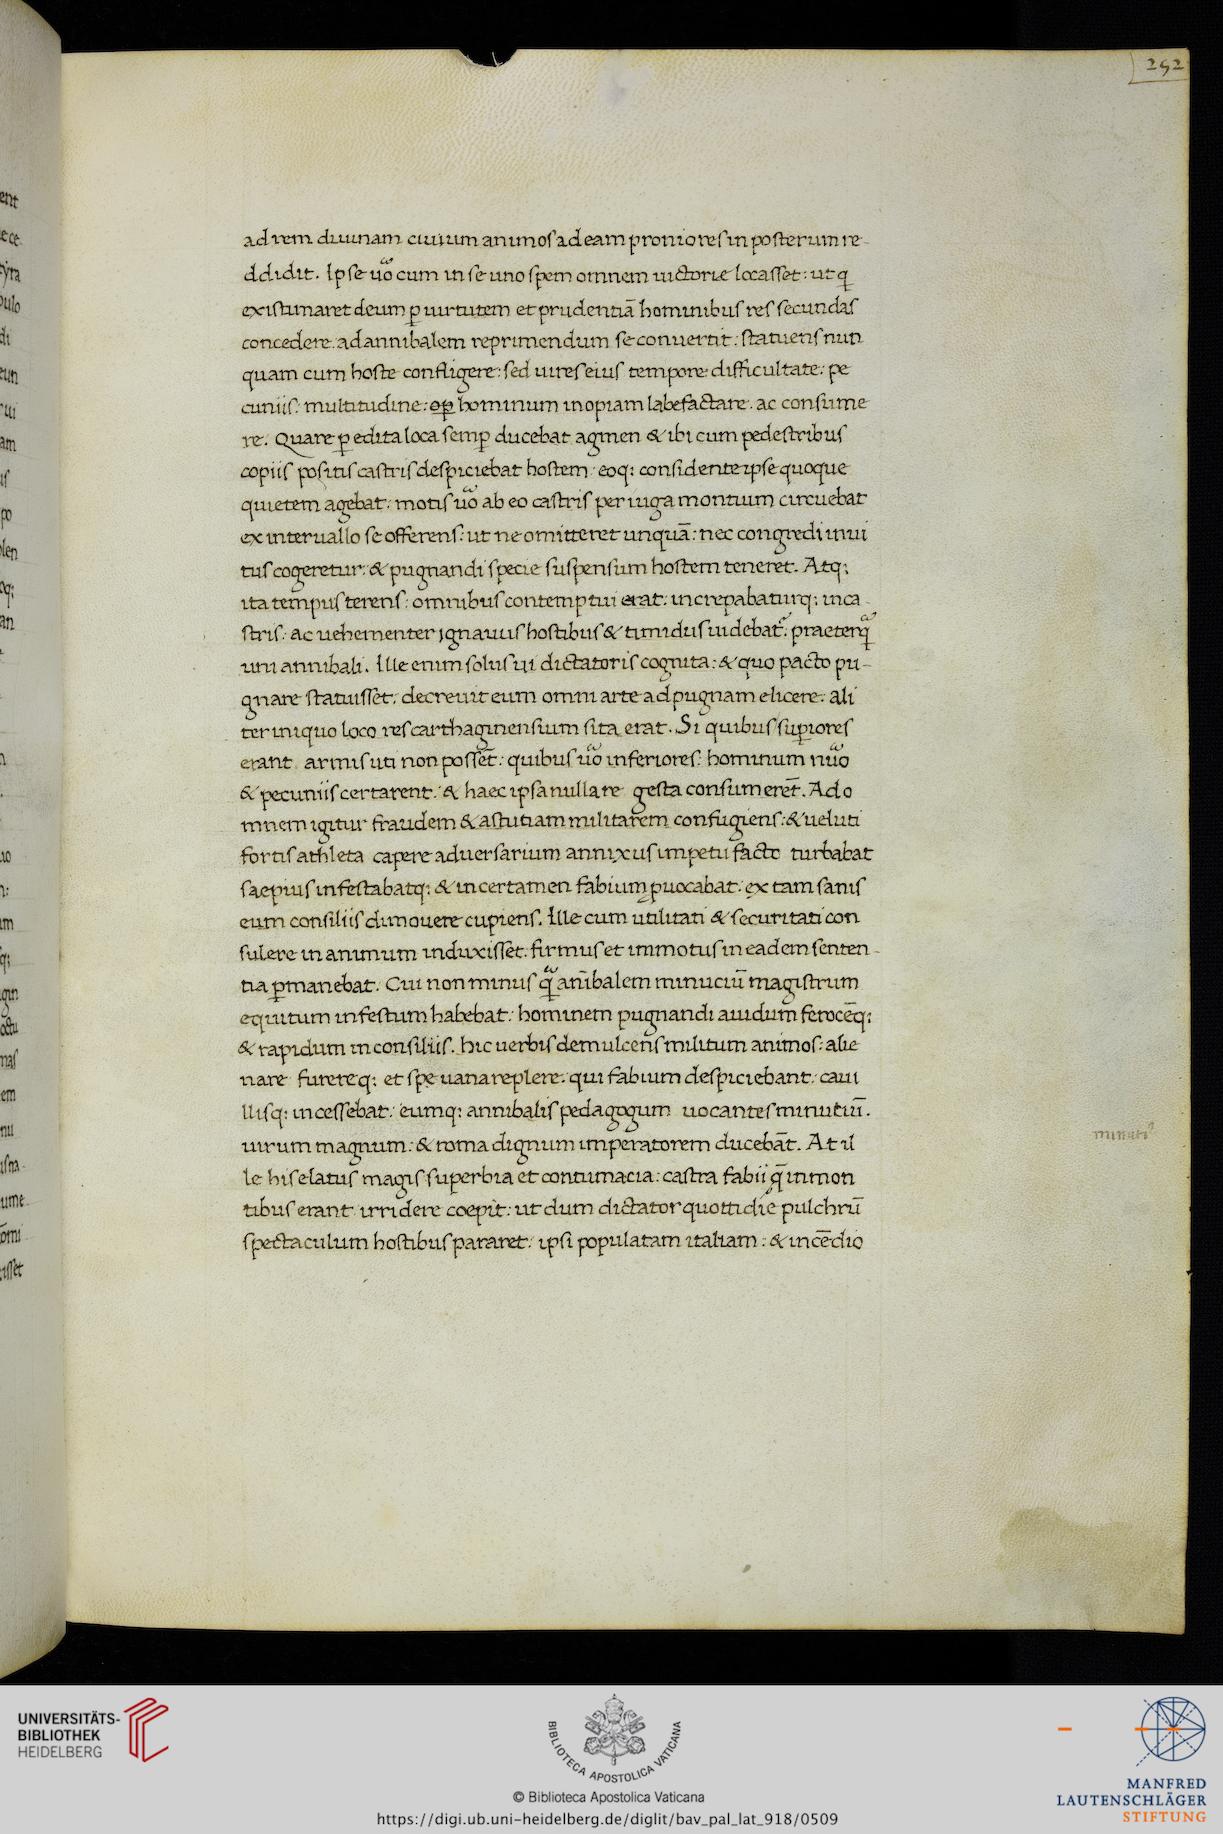 252
ad rem diuinam ciuium animos ad eam proniores in posterum re-
ddidit. Ipse uo̾ cum in se uno spem omnem uictorie locasset: ut q̣
existimaret deum ꝑ uirtutem et prudentiā hominibus res secundas
concedere. ad annibalem reprimendum se conuertit: statuens nun
quam cum hoste confligere: sed uires eius tempore: difficultate: pe
cuniis: multitudine: oꝑ hominum inopiam labefactare. ac consume
re. Quare ꝑ edita loca semꝑ ducebat agmen & ibi cum pedestribus
copiis positis castris despiciebat hostem. eoq; considente ipse quoque
quietem agebat: motis uo̾ ab eo castris per iuga montium circuebat
ex interuallo se offerens: ut ne omitteret unquā: nec congredi inui
tus cogeretur: & pugnandi specie suspensum hostem teneret. Atq;
ita tempus terens: omnibus contemptui erat: increpabaturq; in ca-
stris: ac uehementer ignauus hostibus & timidus uidebat̾: praeterq̾
uni annibali. Ille enim solus ui dictatoris cognita: & quo pacto pu-
gnare statuisset: decreuit eum omni arte ad pugnam elicere: ali
ter iniquo loco res carthaginensium sita erat. Si quibus suꝑiores
erant armis uti non possēt: quibus uo̾ inferiores: hominum nu̾o
& pecuniis certarent: & haec ipsa nulla re gesta consumerēt. Ad o
mnem igitur fraudem & astutiam militarem confugiens: & ueluti
fortis athleta capere aduersarium annixus impetu facto turbabat
saepius infestabatq; & in certamen fabium ꝓuocabat: ex tam sanis
eum consiliis dimouere cupiens. Ille cum utilitati & securitati con
sulere in animum induxisset. firmus et immotus in eadem senten-
tia ꝑmanebat. Cui non minus q̾ ānibalem minuciū magistrum
equitum infestum habebat: hominem pugnandi auidum ferocēq;
& rapidum in consiliis. hic uerbis demulcens militum animos: alie
nare furereq; et spe uana replere. qui fabium despiciebant: caui
llisq; incessebat: eumq; annibalis pedagogum uocantes minutiū.
uirum magnum: & roma dignum imperatorem ducebāt. At il
le his elatus magis superbia et contumacia: castra fabii q̄ in mon
tibus erant irridere coepit: ut dum dictator quottidie pulchrū
spectaculum hostibus pararet: ipsi populatam italiam: & incēdio
UNIVERSITÄTS-
BIBLIOTHEK
HEIDELBERG
BIBLIOTECA APOSTOLICA VATICANA
© Biblioteca Apostolica Vaticana
https://digi.ub.uni-heidelberg.de/diglit/bav_pal_lat_918/0509
MANFRED
LAUTENSCHLÄGER
STIFTUNG